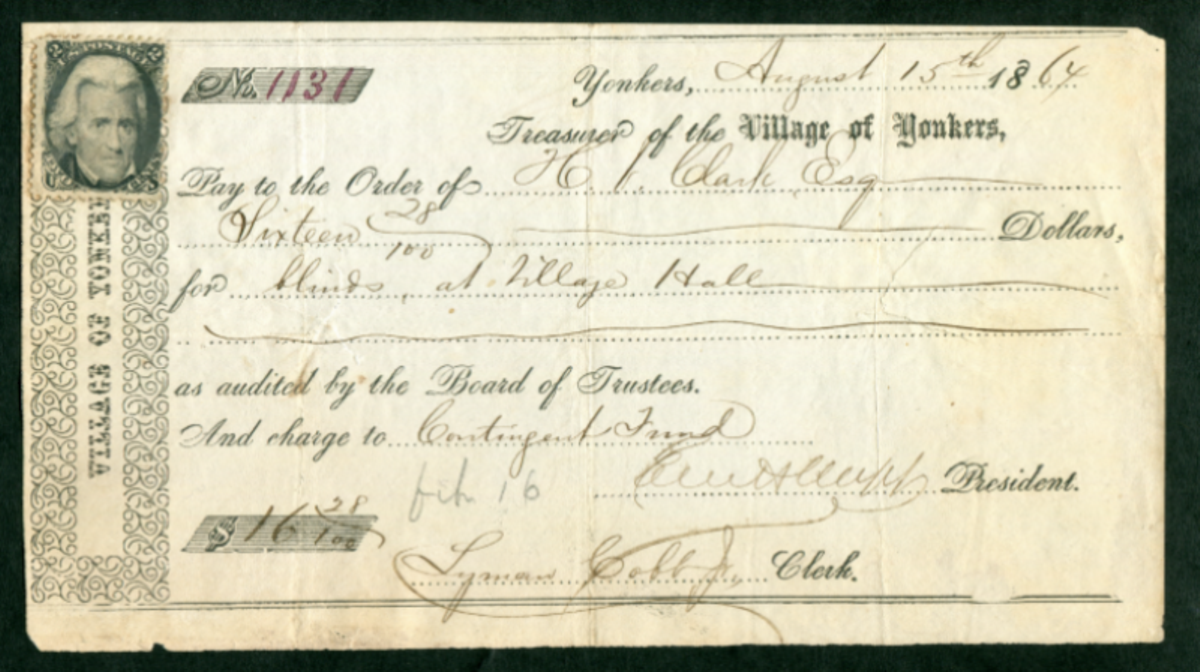 No. 1131
Yonkers, August 15th 1864
Treasurer of the Village of Yonkers,
Pay to the Order of H. J. Clark Esq
Sixteen 28/100 Dollars,
for blinds at Village Hall
as audited by the Board of Trustees.
And charge to Contingent Fund
President.
$ 16 28/100
Lyman Cobb Jr, Clerk.
VILLAGE OF YONKERS